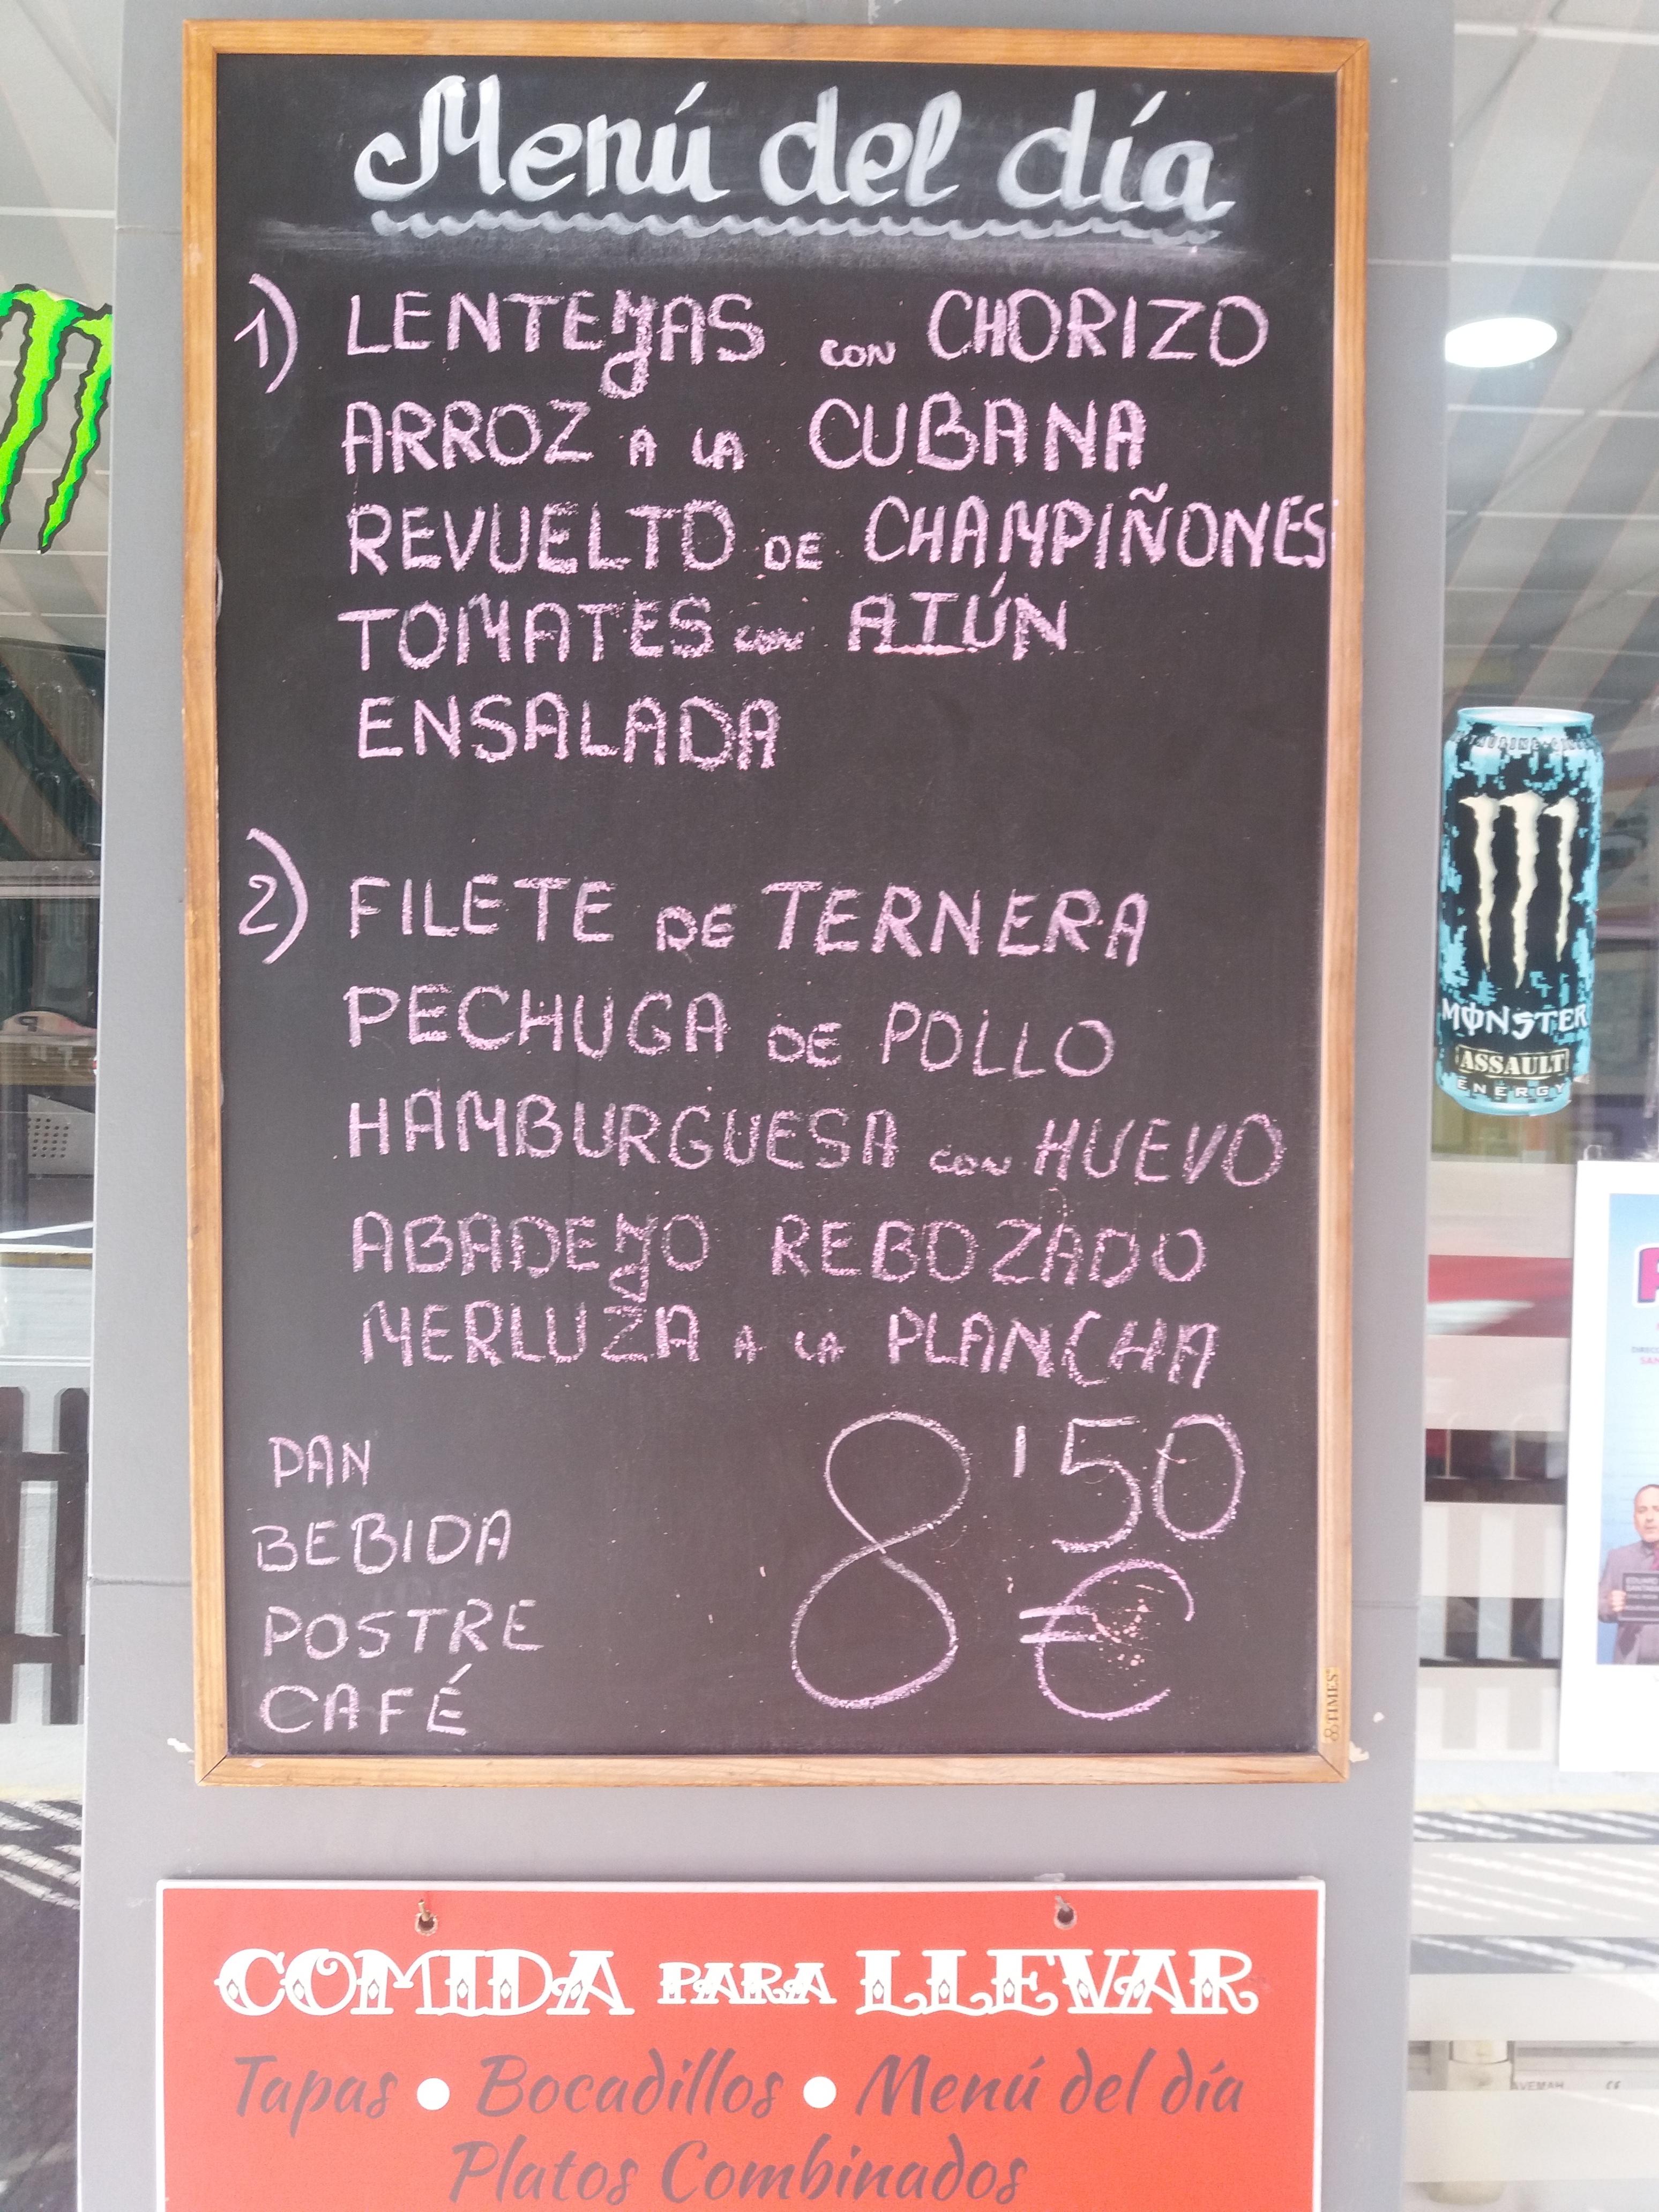 Menú del día
1) LENTEJAS CON CHORIZO
ARROZ A LA CUBANA
REVUELTO DE CHAMPIÑONES
TOMATES CON ATÚN
ENSALADA
2) FILETE DE TERNERA
PECHUGA DE POLLO
HAMBURGUESA CON HUEVO
ABADEJO REBOZADO
MERLUZA A LA PLANCHA
PAN
BEBIDA
POSTRE
CAFÉ
8'50
€
TIMES
COMIDA PARA LLEVAR
Tapas • Bocadillos • Menú del día
Platos Combinados
MONSTER
ASSAULT
ENERGY